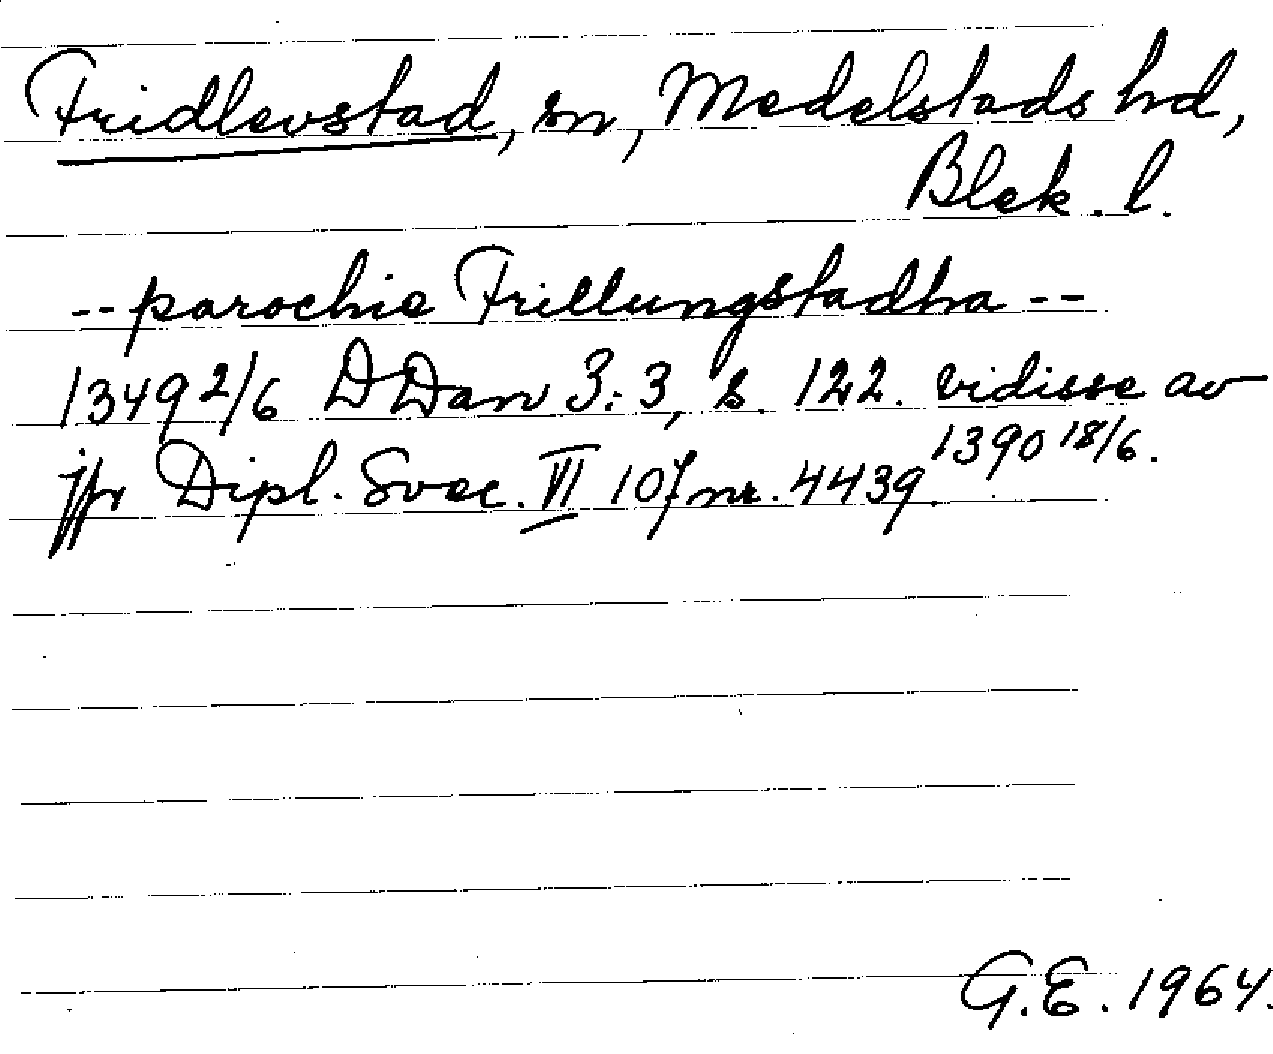 Fridlevstad, sn, Medelstads hd,
Blek. l.
-- parochie Frillungstadha --
1349 2/6 DDan 3:3, s. 122. vidisse av
1390 18/6.
jfr Dipl. Svec. VI 107 nr. 4439.
G.E. 1964.